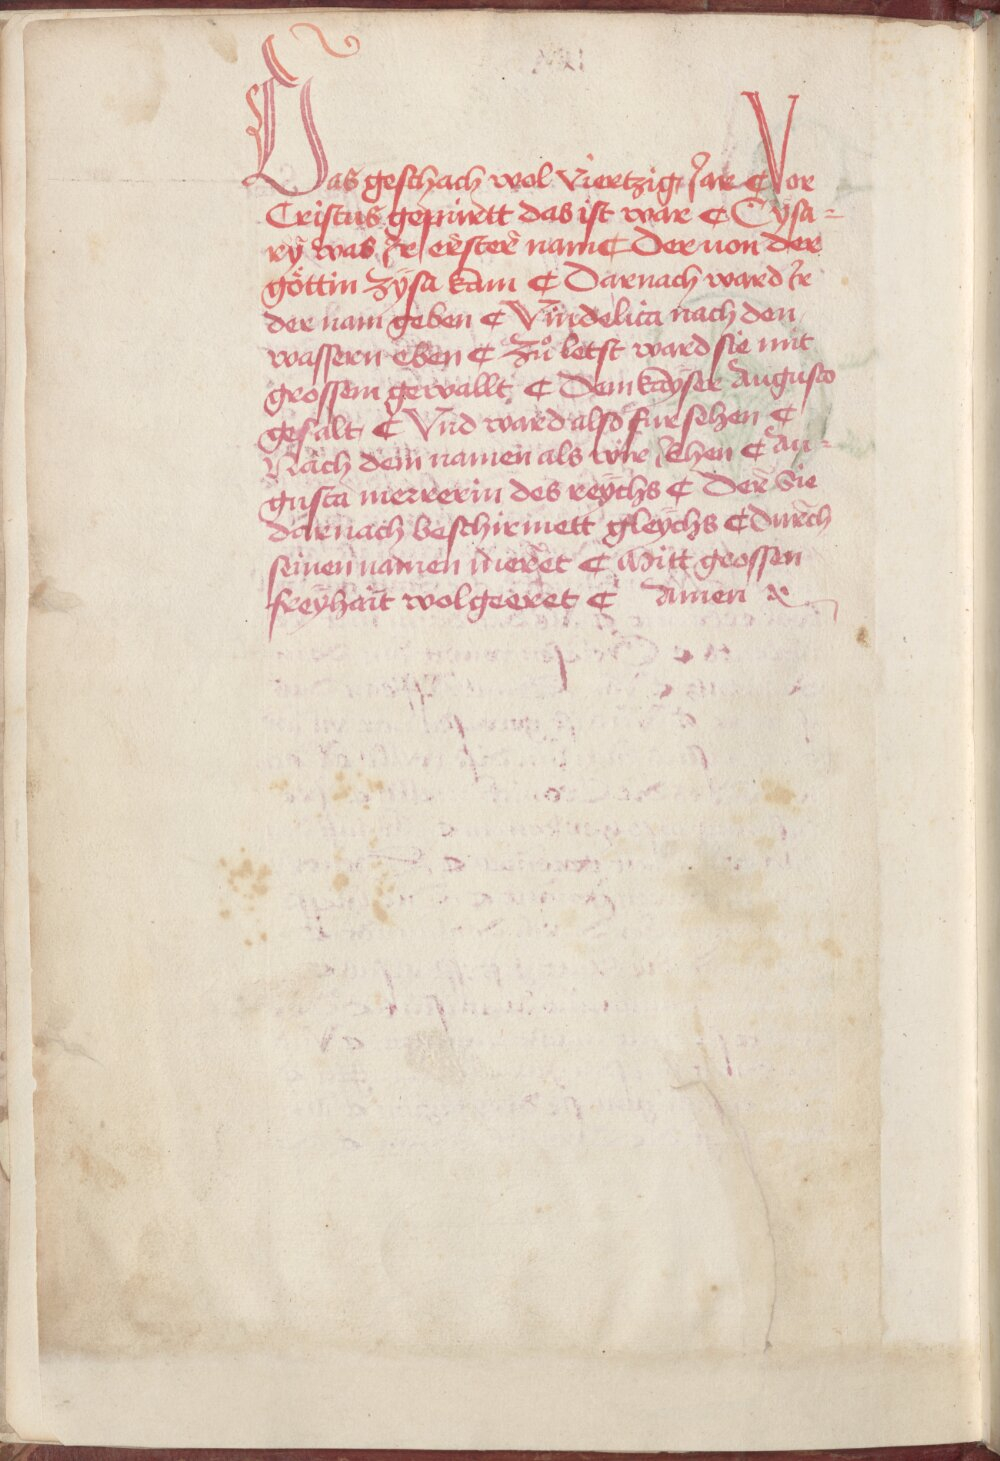 Das geschach wol viertzig Jar ¶ Vor
Cristus gepurtt das ist war ¶ Cÿsa=
rÿ was Ir erster nam ¶ Der von der
göttin Zÿsa kam ¶ Darnach ward Ir
der nam geben ¶ Vindelica nach den
wassern eben ¶ Zů letst ward sie mit
grossem gewallt ¶ Dem kaÿser Augusto
gesalt ¶ Vnd ward also fursehen ¶
Nach dem namen als wir Iehen ¶ Au=
gusta merrerin des reÿchs ¶ Der Sie
darnach beschirmett gleÿchs ¶ durch
seinen namen meret ¶ Mitt grossen
freÿhait wol geeret ¶ Amen